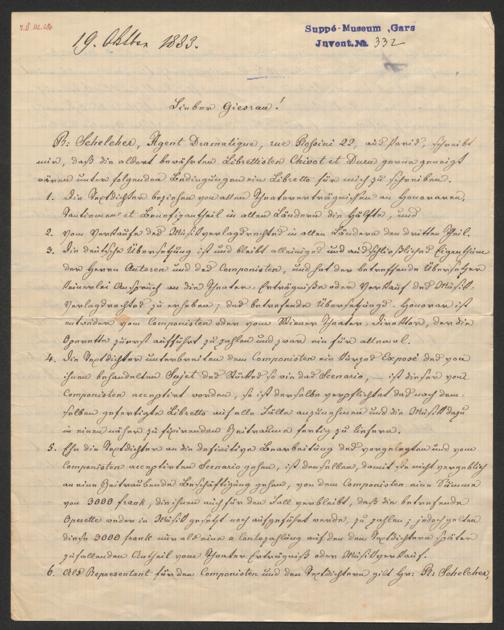 19. Oktber 1883.
Suppé-Museum, Gars
Juvent. No. 332
Lieber Giesrau!
R: Schelcher, Agent Dramatique, rue Rossini 22, aus Paris, schreibt
mir, daß die altbewährten Librettisten Chivot et Duru gerne geneigt
wären unter folgenden Bedingungen ein Libretto für mich zu schreiben.
1. Die Textdichter beziehen von allen Theatererträgnissen an Honoraren,
Tantiemen et Benefizantheil in allen Ländern die Hälfte, und
2. vom Verkaufe des Musikverlagsrechtes in allen Ländern den dritten Theil.
3. Die deutsche Übersetzung ist und bleibt alleiniges und ausschließliches Eigenthum
der Herren Autoren und des Componisten, und hat der betreffende Übersetzer
keinerlei Anspruch an die Theater-Erträgnisse oder Verkauf des Musik-
verlagsrechtes zu erheben; das betreffende Übersetzungs-Honorar ist
entweder vom Componisten oder vom Wiener Theater-Direktor, der die
Operette zuerst aufführt zu zahlen und zwar ein für allemal.
4. Die Textdichter unterbreiten dem Componisten ein Exposé des von
ihnen behandelten Sujet des Stückes so wie das Scenario, – ist dieses vom
Componisten acceptirt worden, so ist derselbe verpflichtet das nach dem-
selben gefertigte Libretto auf alle Fälle anzunehmen und die Musik dazu
in einem näher zu fixirenden Zeitraume fertig zu liefern.
5. Ehe die Textdichter an die definitive Bearbeitung des vorgelegten und vom
Componisten acceptirten Scenario gehen, ist denselben, damit sie nicht vergeblich
an eine zeitraubende Beschäftigung gehen, von dem Componisten eine Summe
von 3000 frank, die ihnen auch für den Fall verbleibt, daß die betreffende
Operette weder in Musik gesetzt noch aufgeführt werde, zu zahlen; jedoch gelten
diese 3000 frank nur als eine a Contozahlung auf den den Textdichtern später
zufallenden Antheil vom Theater-Erträgniß oder Musikverkauf.
6. Als Representant für den Componisten und den Textdichtern gilt Hr: R: Schelcher,